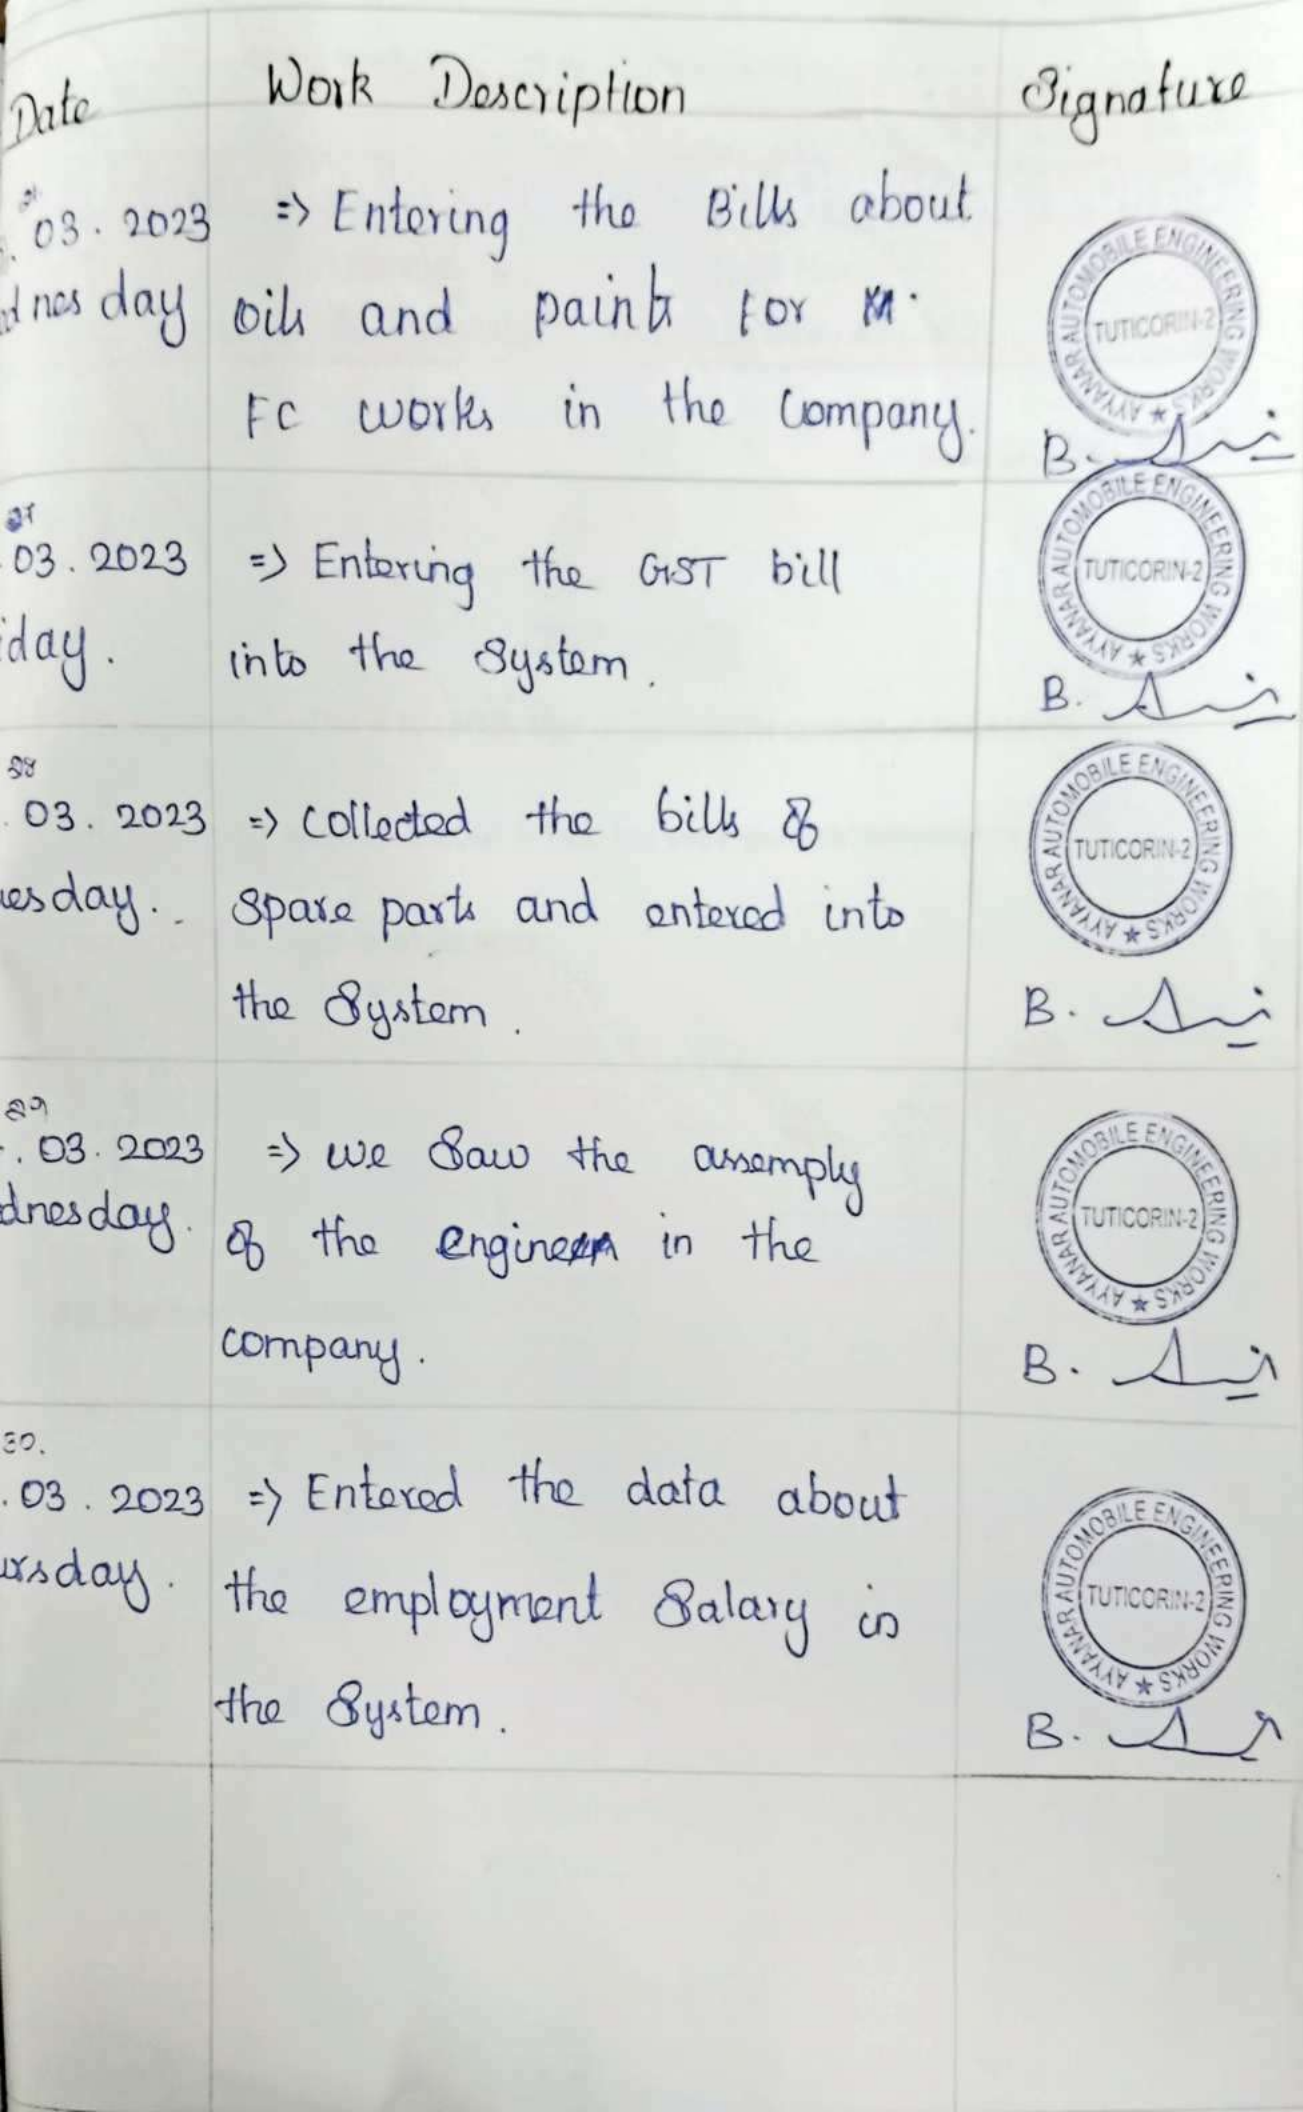 Date Work Description Signature
03.2023 => Entering the Bills about
day oils and paints for
FC works in the Company.
AYYANAR AUTOMOBILE ENGINEERING WORKS ★
TUTICORIN-2
B.
27
03.2023 => Entering the GST bill
iday. into the System.
AYYANAR AUTOMOBILE ENGINEERING WORKS ★
TUTICORIN-2
B.
28
.03.2023 => Collected the bills of
uesday. Spare parts and entered into
the System.
AYYANAR AUTOMOBILE ENGINEERING WORKS ★
TUTICORIN-2
B.
29
.03.2023 => we Saw the assemply
dnesday. of the engine in the
company.
AYYANAR AUTOMOBILE ENGINEERING WORKS ★
TUTICORIN-2
B.
30.
.03.2023 => Entered the data about
ursday. the employment Salary in
the System.
AYYANAR AUTOMOBILE ENGINEERING WORKS ★
TUTICORIN-2
B.